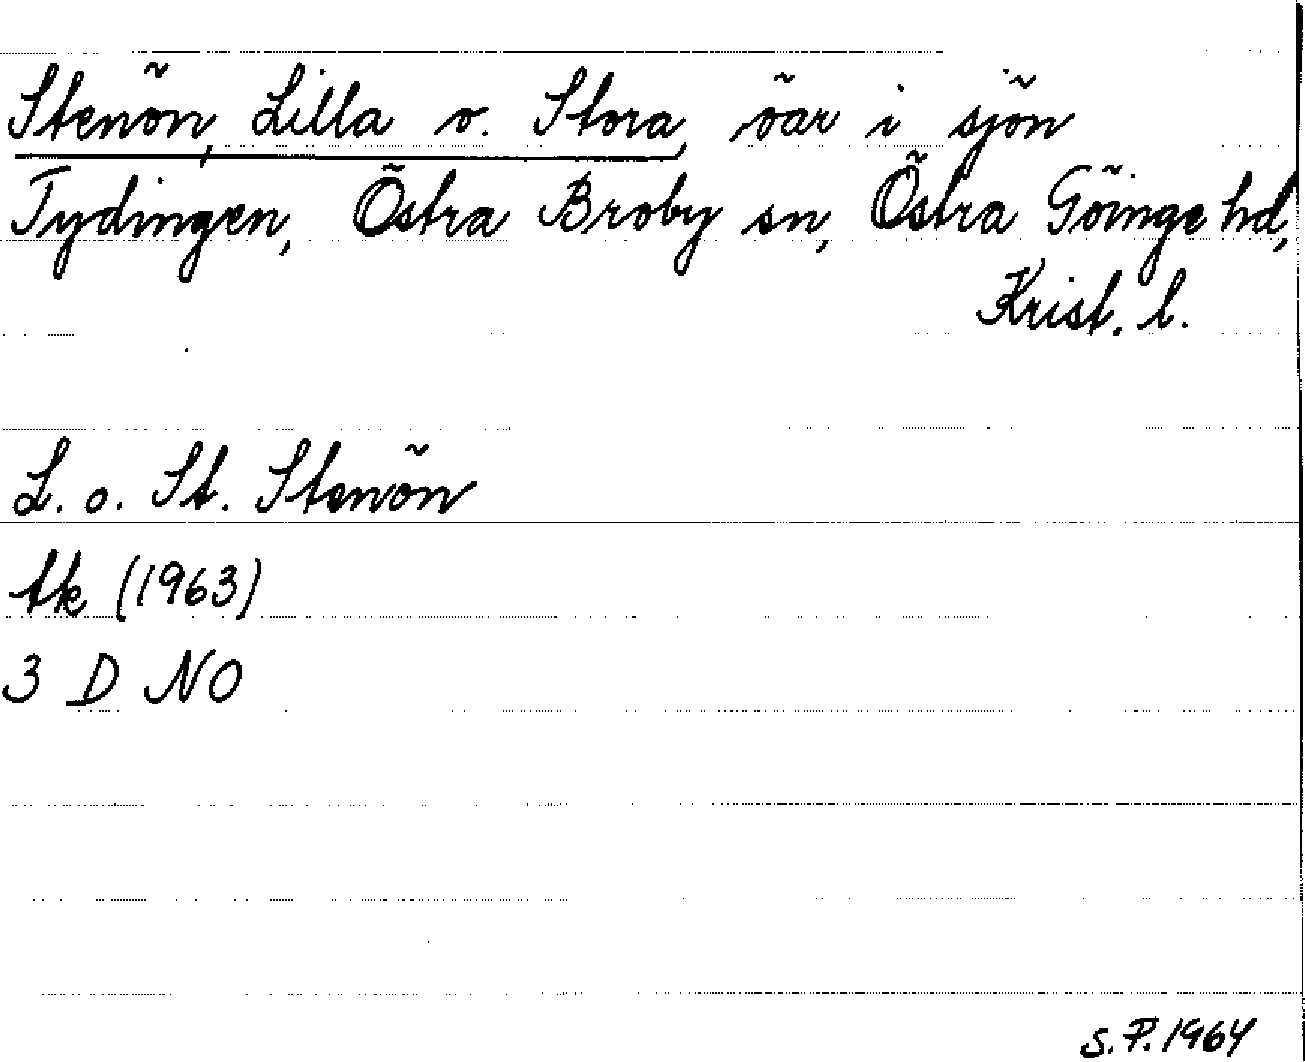 Stenön, Lilla o. Stora, öar i sjön
Tydingen, Östra Broby sn, Östra Göinge hd,
Krist. l.
L. o. St. Stenön
tk (1963)
3 D NO
S. F. 1964